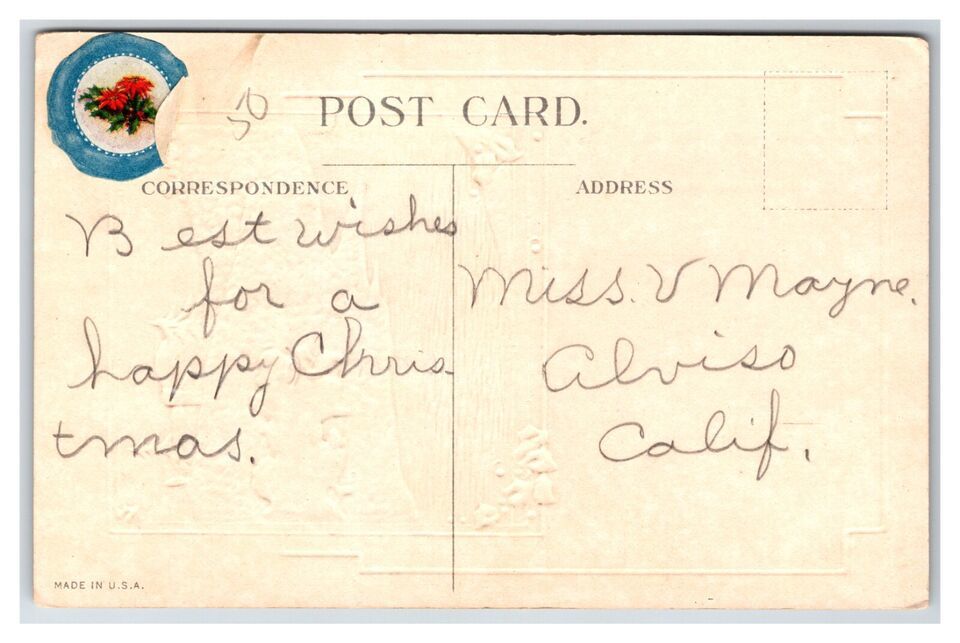 50
POST CARD.
CORRESPONDENCE
Best wishes
for a
happy Chris
tmas.
ADDRESS
Miss. V Mayne.
Alviso
Calif.
MADE IN U.S.A.